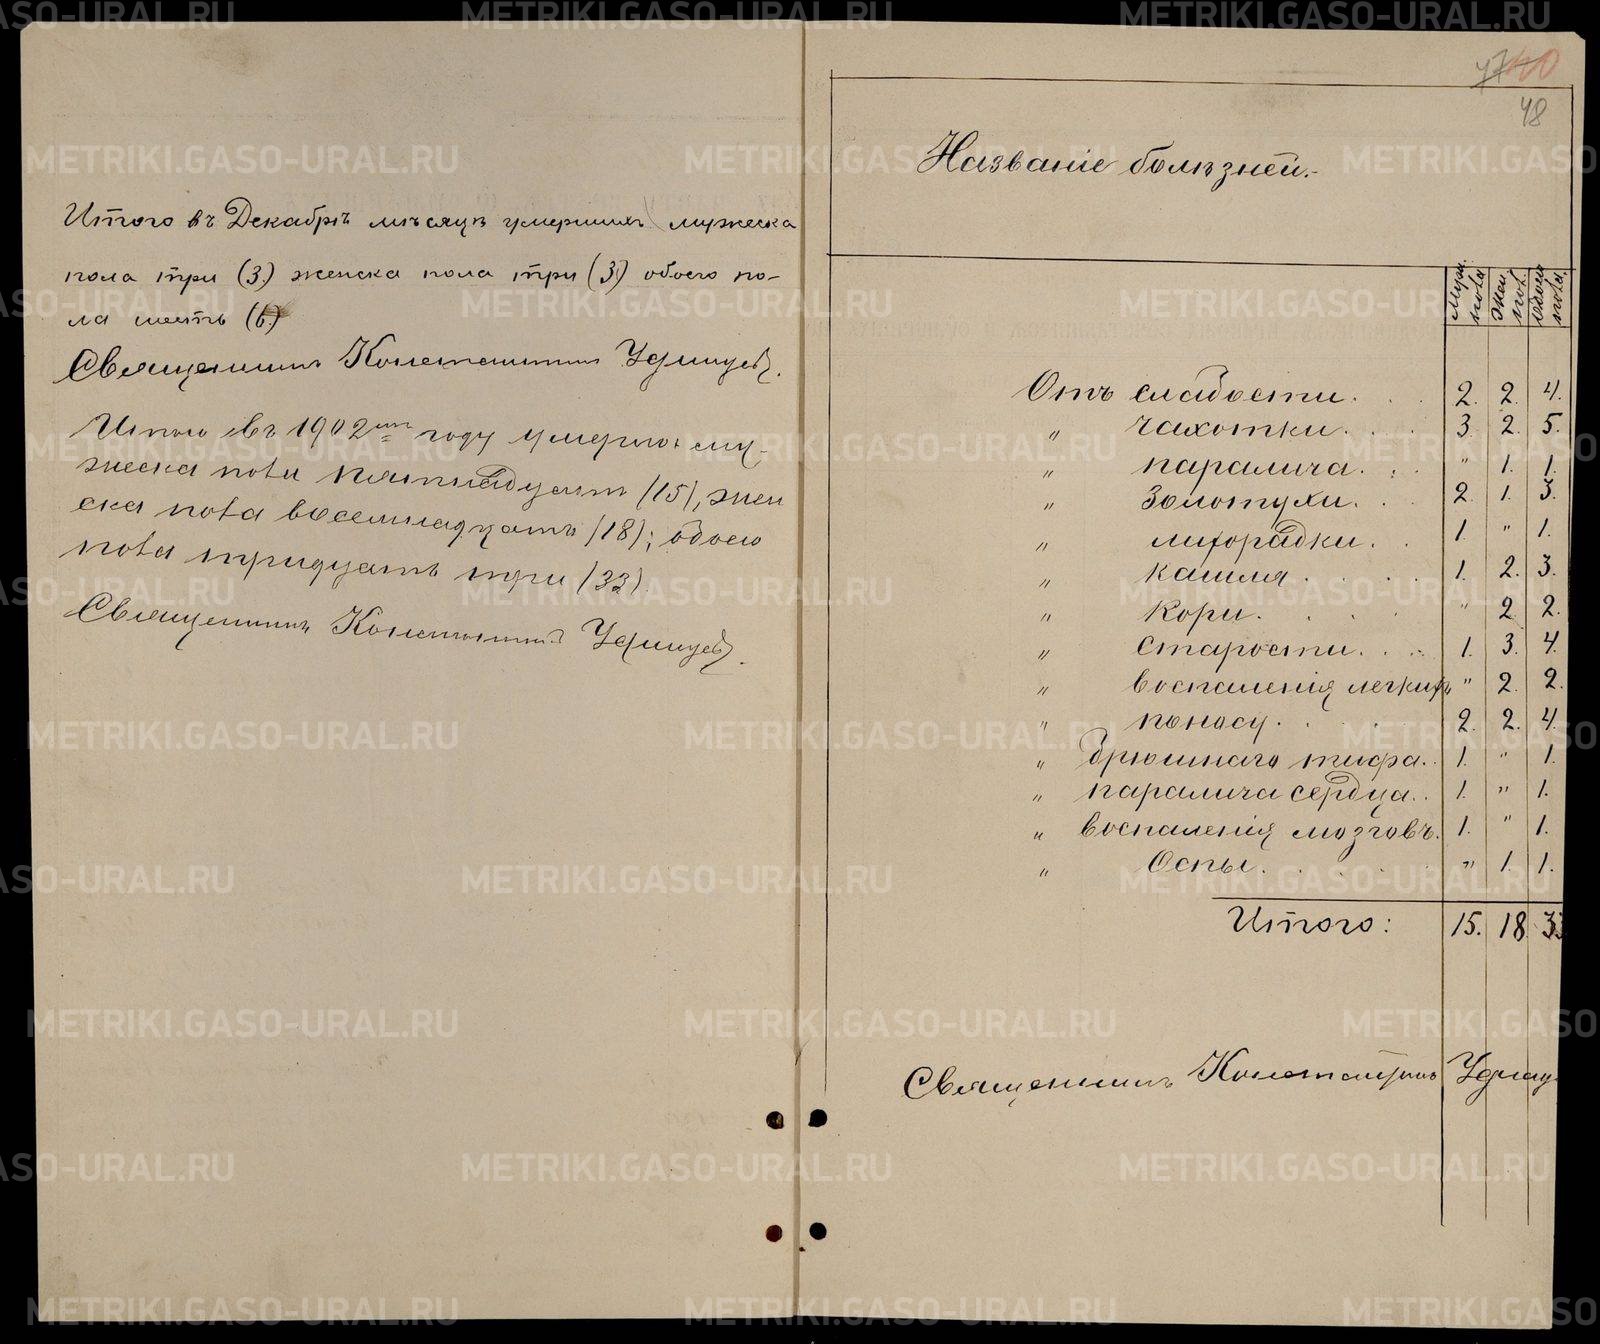 Итого въ Декабрѣ мѣсяцѣ умершихъ мужеска
пола три (3) женска пола три (3) обоего по-
ла шесть (6)
Священникъ Константинъ Удинцевъ.
Итого въ 1902мъ году умерло: му-
жеска пола пятнадцать (15), жен
ска пола восемнадцать (18); обоего
пола тридцать три (33).
Священникъ Константинъ Удинцевъ.
47 40
48
Названіе болѣзней.-
Муж. пола Жен. пол. Обоего пола.
Отъ слабости. 2. 2. 4.
" чахотки. 3. 2. 5.
" паралича. " 1. 1.
" золотухи. 2. 1. 3.
" лихорадки. 1. " 1.
" кашля. 1. 2. 3.
" кори. " 2. 2.
" старости. 1. 3. 4.
" воспаленія легкихъ " 2. 2.
" поносу. 2. 2. 4.
" брюшнаго тифа. 1. " 1.
" паралича сердца. 1. " 1.
" воспаленія мозговъ. 1. " 1.
" Оспы. " 1. 1.
Итого: 15. 18 33
Священникъ Константинъ Удинц
METRIKI.GASO-URAL.RU